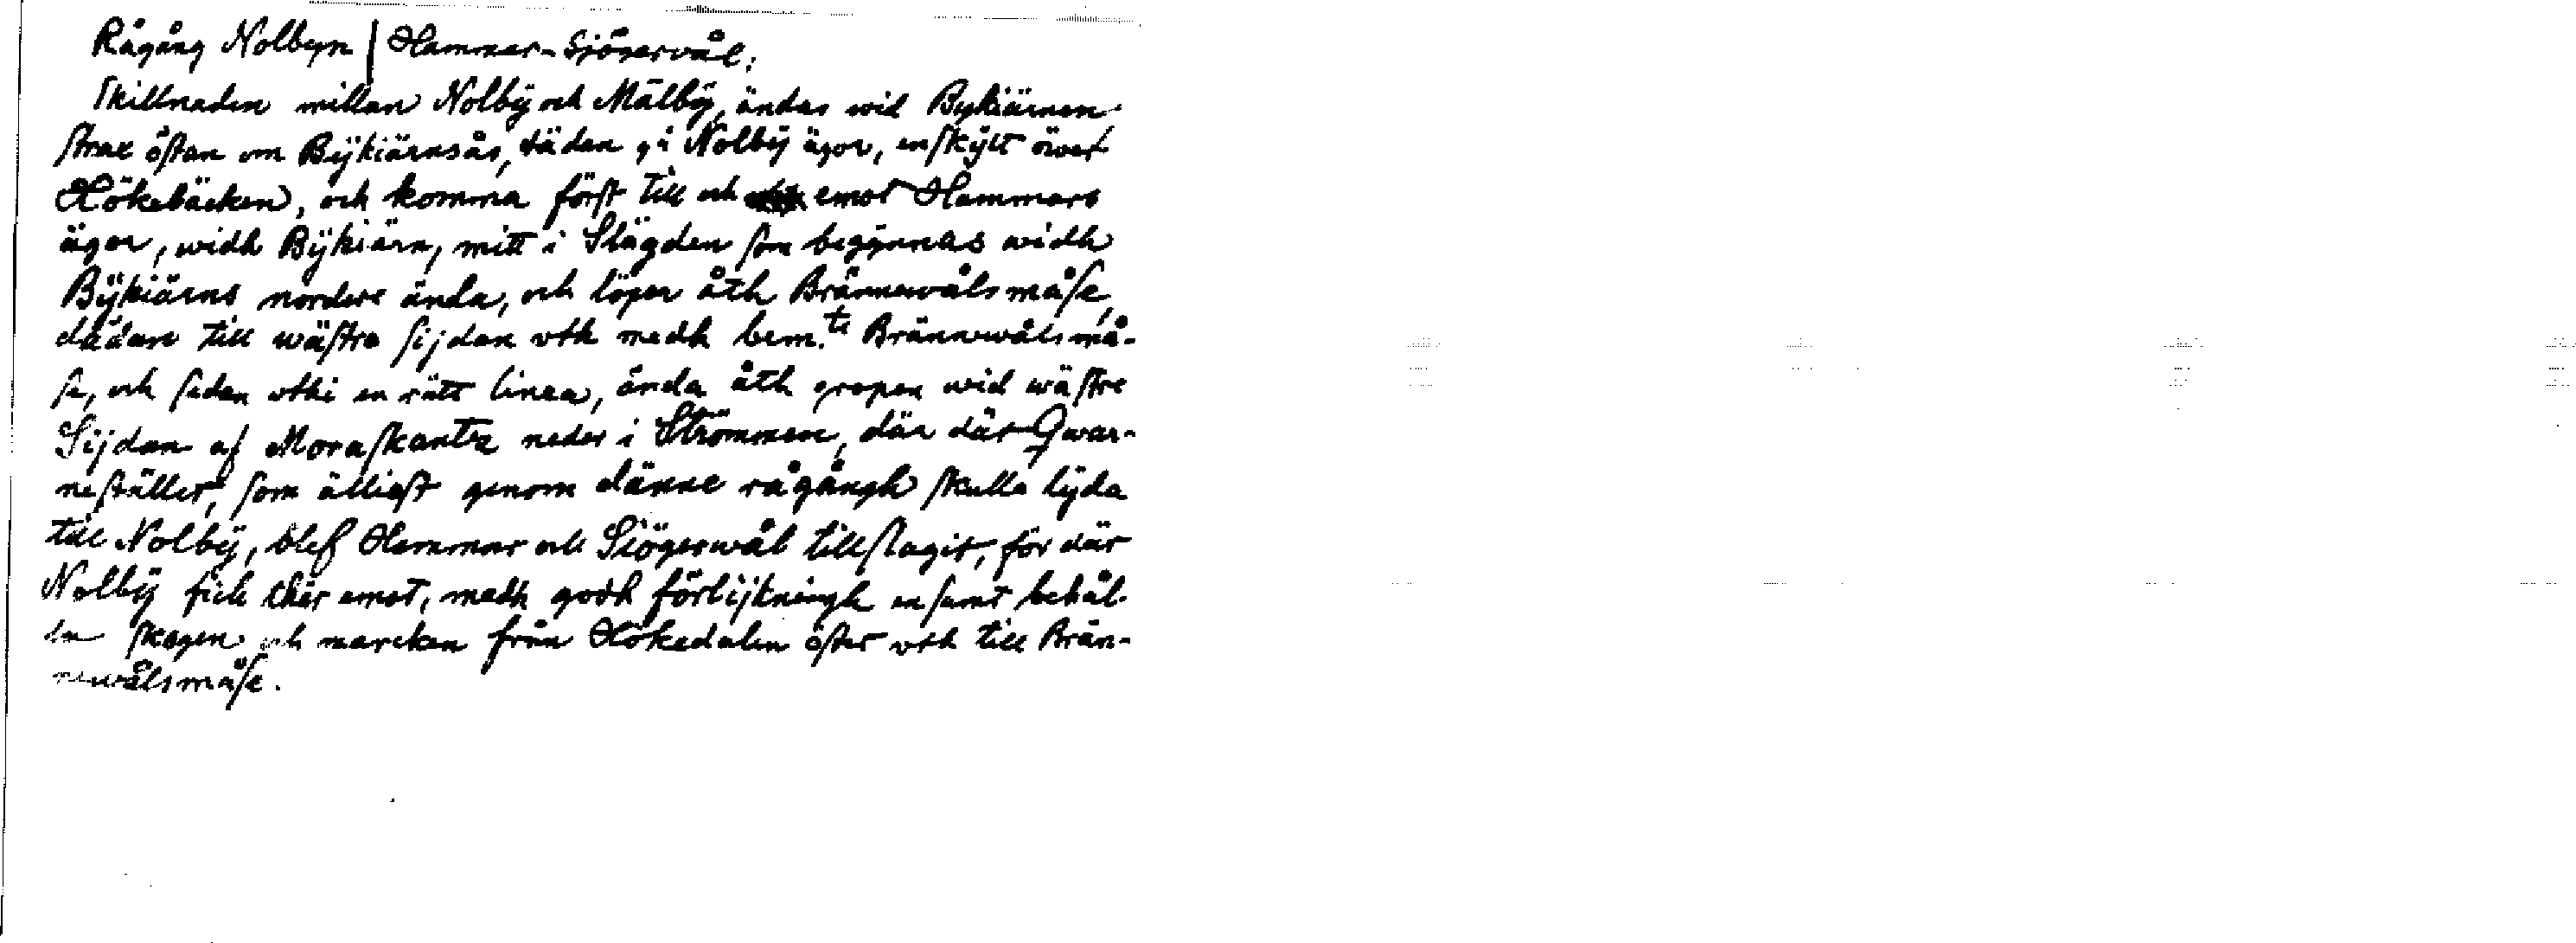 Rågång Nolbyn | Hammar-Sjögervål:
Skillnaden millan Nolbÿ och Mälbÿ, ändas wid Bykiärnen
strax östan om Bÿkiärnsås, dädan gå Nolbÿ ägor, en skÿtt öwer
Hökebäcken, och komma först till och emot Hammars
ägor, widh Bÿkiärn, mitt i Slägden som begÿnnas widh
Bÿkiärns nordere ända, och löper åth Brännewåls måse,
dädan till wästra sijdan vth medh bem.te Brännewålsmå-
se, och sedan vthi en rätt linea, ända åth gropen wid wästre
Sijdan af Moraskantz neder i Strömmen, där där Qwar-
nestället, som älliest genom dänne rågångh skulle lÿda
till Nolbÿ, blef Hammar och Siögerwål tillslagit, för där
Nolbÿ fick thär emot, medh godh förlijkningh ensamt behål-
la skogen och marcken från Hökedalen öster vth till Brän-
newålsmåse.